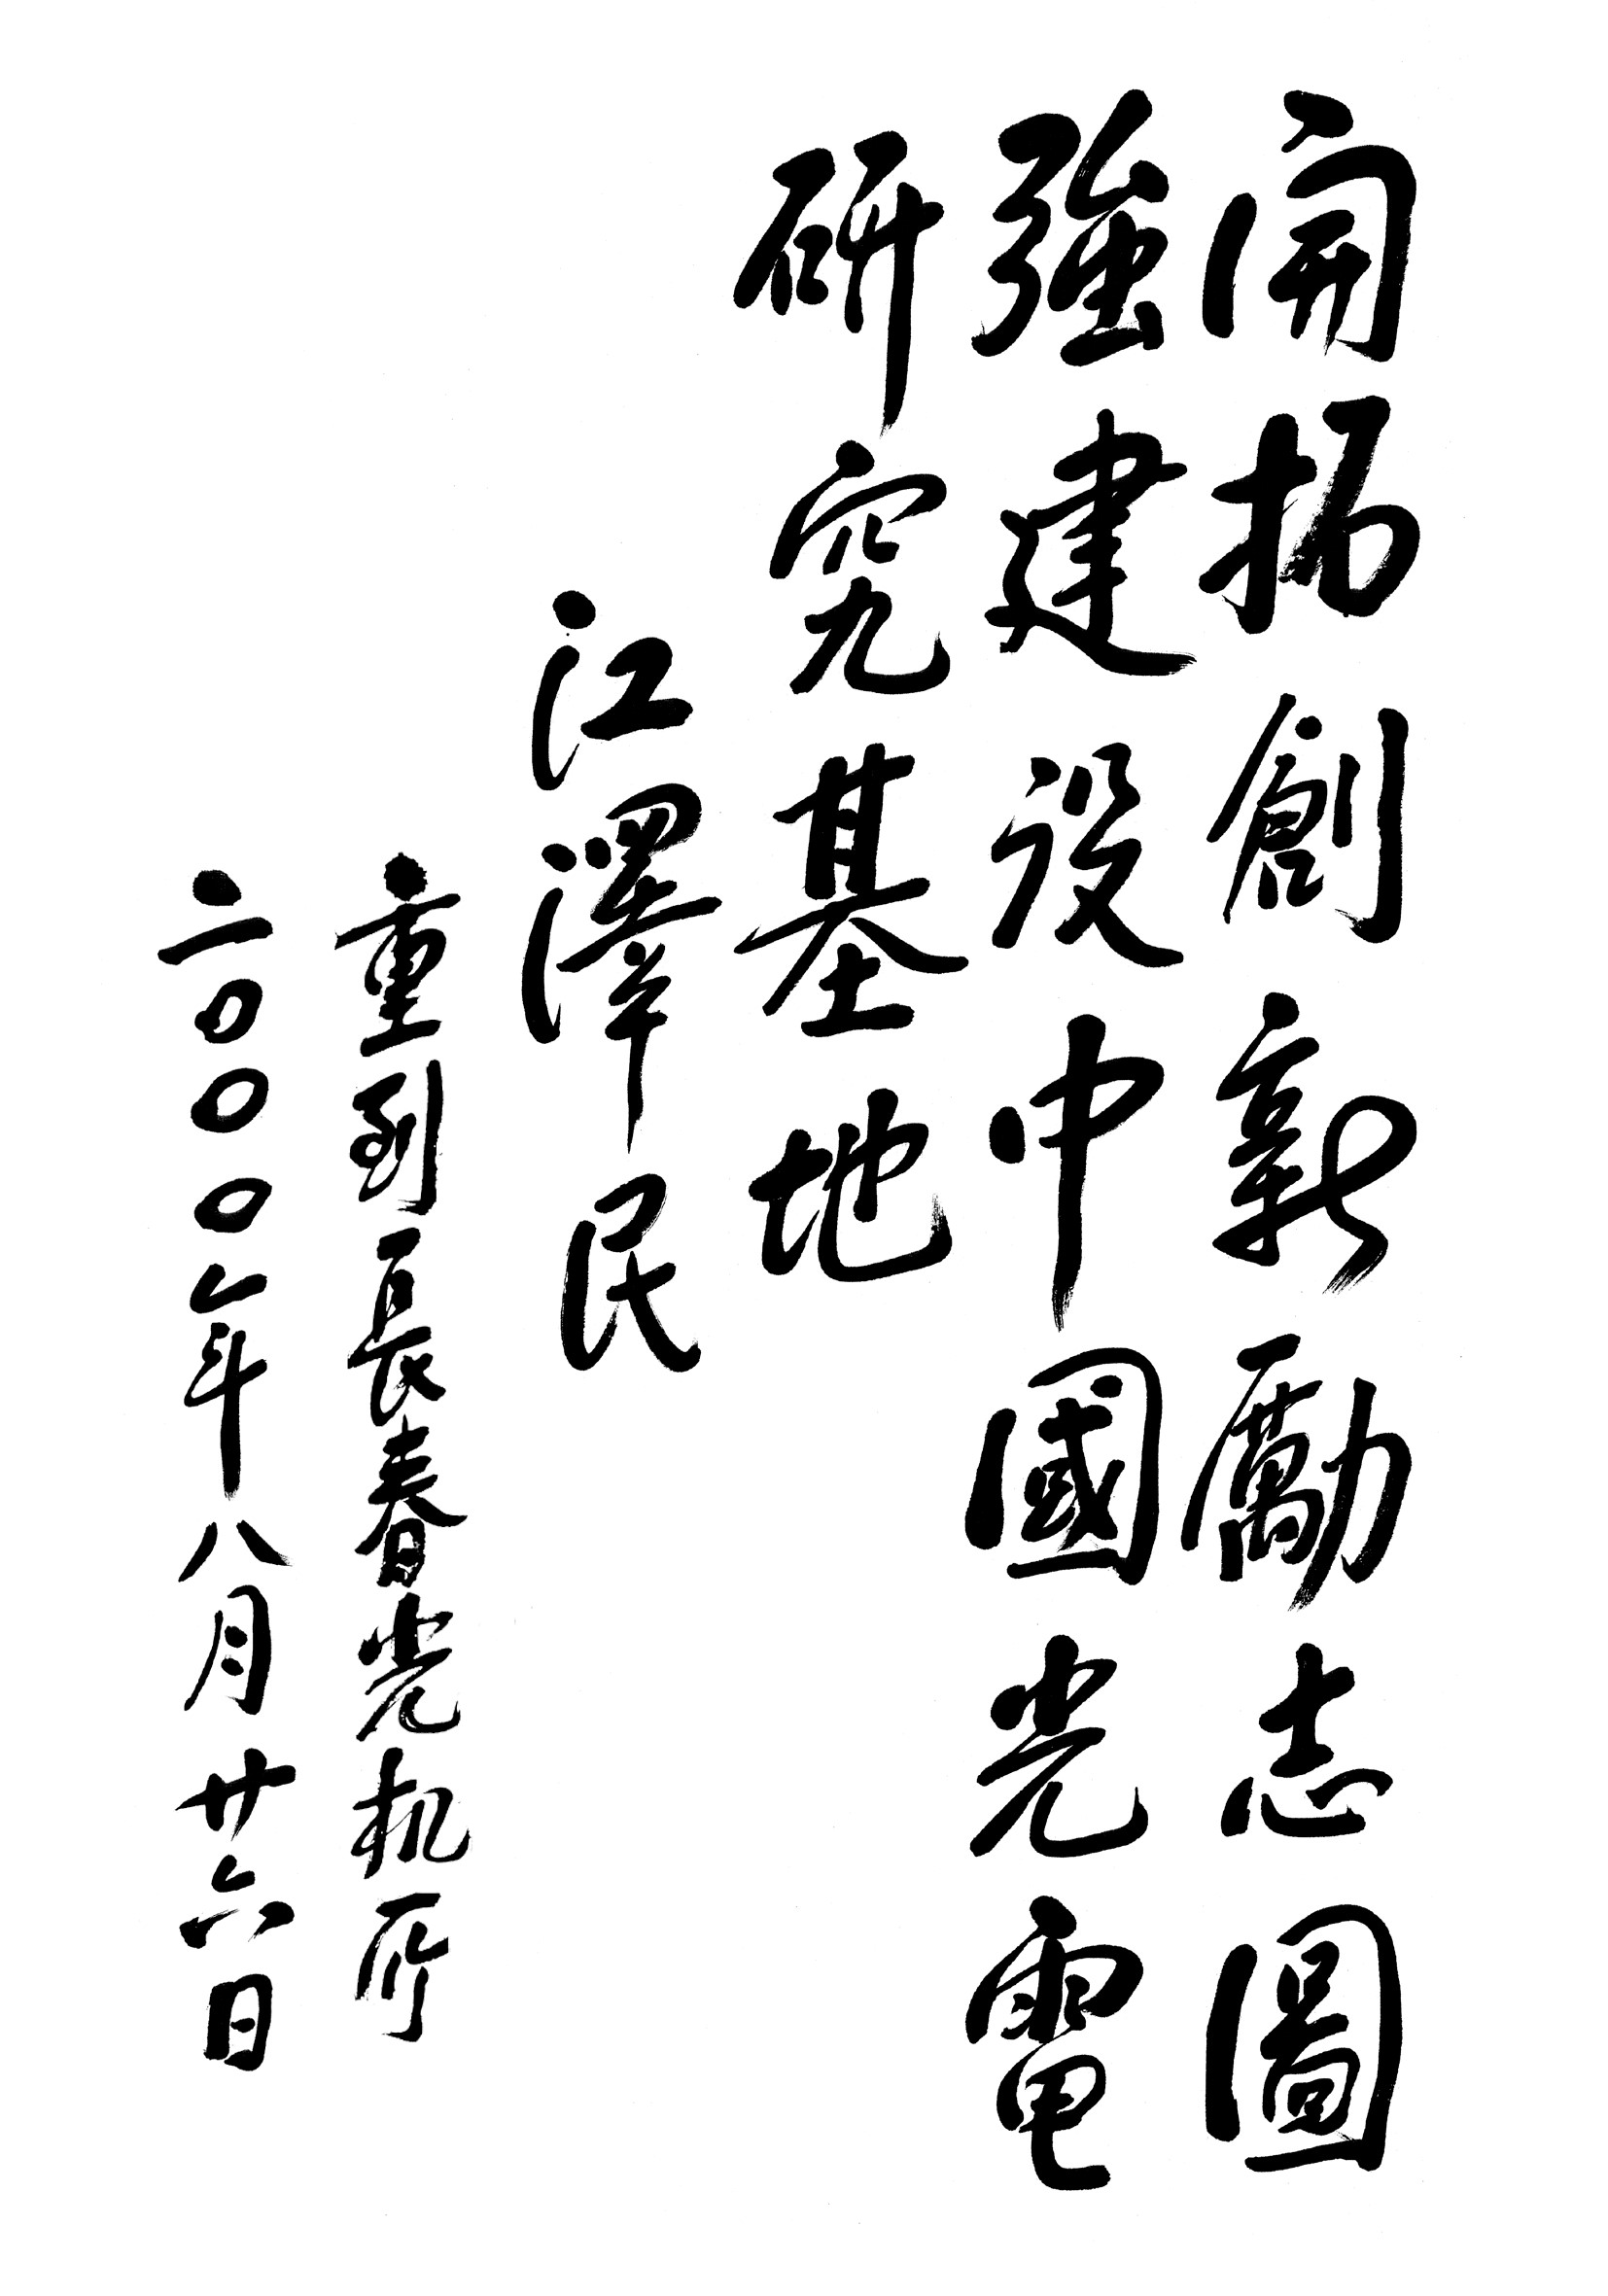 開拓創新勵志圖
強建設中國光電
研究基地
江澤民
重到長春光机所
二〇〇〇年八月廿六日